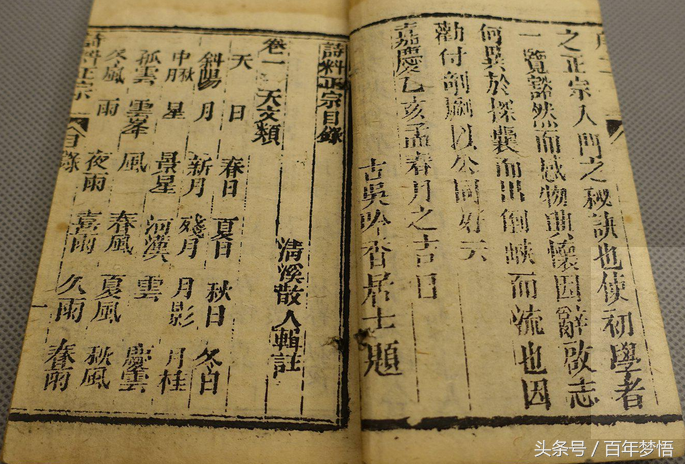 之正宗入門之秘訣也使初學者
一覽豁然而感物興懷因辭啟志
何異於探囊而出倒峽而流也因
勸付剞劂以公同好云
嘉慶乙亥孟春月之吉日
古吳吟香居士題
詩料正宗目錄
清溪散人輯註
卷一 天文類
天 日 春日 夏日 秋日 冬日
斜陽 月 新月 殘月 月影 月桂
中秋月 星 景星 河漢 雲 慶雲
孤雲 雲峯 風 春風 夏風 秋風
冬風 雨 夜雨 喜雨 久雨 春雨
詩料正宗 目錄 一
头条号 / 百年梦悟